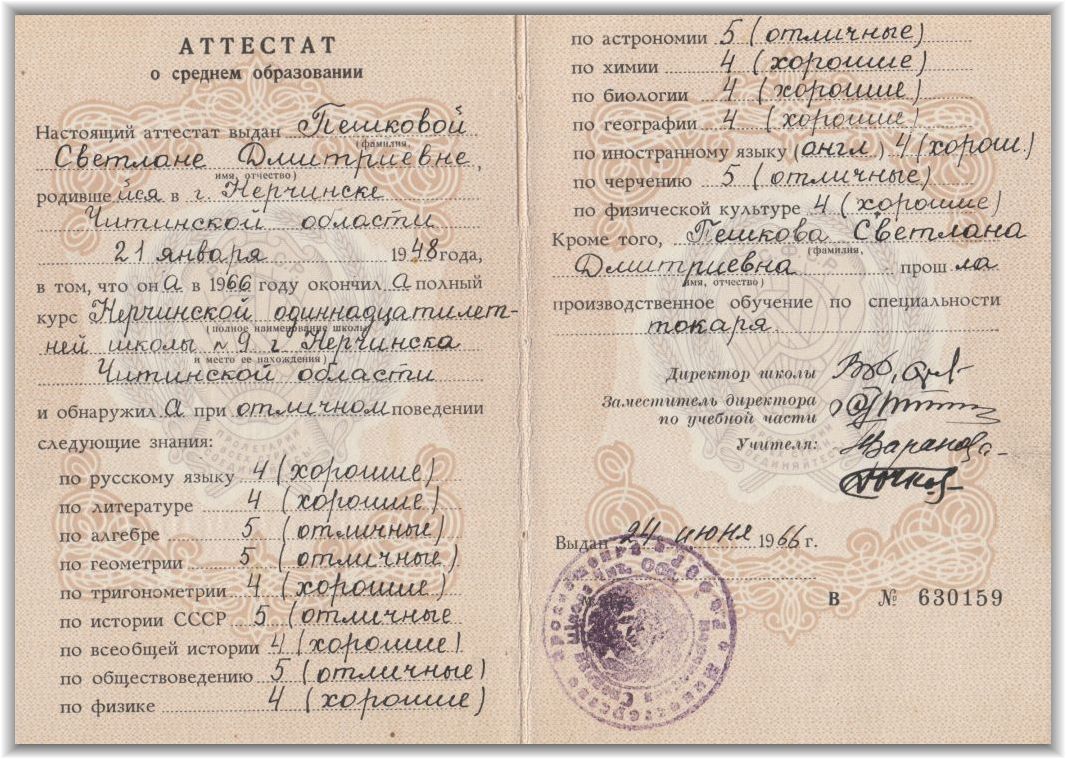 АТТЕСТАТ
о среднем образовании
Настоящий аттестат выдан Пешковой
(фамилия,
Светлане Дмитриевне,
имя, отчество)
родившейся в г Нерчинске
Читинской области
21 января 1948 года,
в том, что она в 1966 году окончила полный
курс Нерчинской одиннадцатилет-
(полное наименование школы
ней школы № 9 г Нерчинска
и место ее нахождения)
Читинской области
и обнаружила при отличном поведении
следующие знания:
по русскому языку 4 (хорошие)
по литературе 4 (хорошие)
по алгебре 5 (отличные)
по геометрии 5 (отличные)
по тригонометрии 4 (хорошие)
по истории СССР 5 (отличные
по всеобщей истории 4 (хорошие)
по обществоведению 5 (отличные)
по физике 4 (хорошие)
по астрономии 5 (отличные)
по химии 4 (хорошие)
по биологии 4 (хорошие)
по географии 4 (хорошие)
по иностранному языку (англ.) 4 (хорош.)
по черчению 5 (отличные)
по физической культуре 4 (хорошие)
Кроме того, Пешкова Светлана
(фамилия,
Дмитриевна прошла
имя, отчество)
производственное обучение по специальности
токаря.
Директор школы
Заместитель директора
по учебной части
Учителя:
Выдан 24 июня 1966 г.
В № 630159